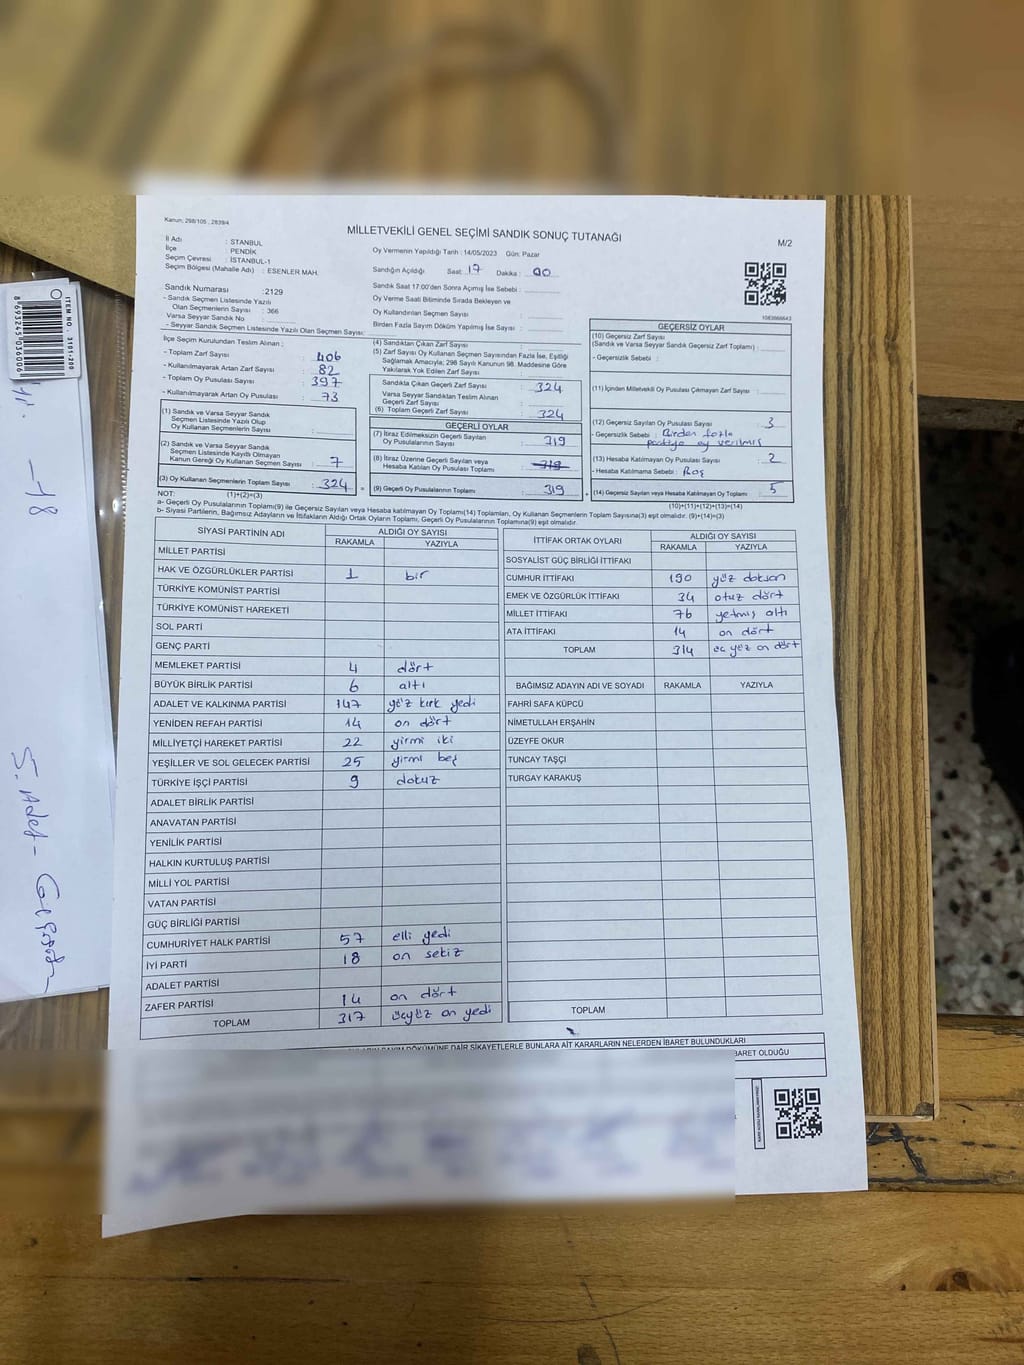 Kanun: 298/105 , 2839/4
MİLLETVEKİLİ GENEL SEÇİMİ SANDIK SONUÇ TUTANAĞI
M/2
İl Adı : İSTANBUL
İlçe : PENDİK
Seçim Çevresi : İSTANBUL-1
Seçim Bölgesi (Mahalle Adı) : ESENLER MAH.
Oy Vermenin Yapıldığı Tarih : 14/05/2023 Gün: Pazar
Sandığın Açıldığı Saat: 17 Dakika : 00
Sandık Saat 17:00'den Sonra Açımış İse Sebebi :
Oy Verme Saati Bitiminde Sırada Bekleyen ve
Oy Kullandırılan Seçmen Sayısı :
Birden Fazla Sayım Döküm Yapılmış İse Sayısı :
1083666643
Sandık Numarası : 2129
- Sandık Seçmen Listesinde Yazılı
Olan Seçmenlerin Sayısı : 366
Varsa Seyyar Sandık No :
- Seyyar Sandık Seçmen Listesinde Yazılı Olan Seçmen Sayısı:
İlçe Seçim Kurulundan Teslim Alınan ;
- Toplam Zarf Sayısı : 406
- Kullanılmayarak Artan Zarf Sayısı : 82
- Toplam Oy Pusulası Sayısı : 397
- Kullanılmayarak Artan Oy Pusulası : 73
(1) Sandık ve Varsa Seyyar Sandık
Seçmen Listesinde Yazılı Olup
Oy Kullanan Seçmenlerin Sayısı :
(2) Sandık ve Varsa Seyyar Sandık
Seçmen Listesinde Kayıtlı Olmayan
Kanun Gereği Oy Kullanan Seçmen Sayısı : 7
(3) Oy Kullanan Seçmenlerin Toplam Sayısı : 324
(4) Sandıktan Çıkan Zarf Sayısı :
(5) Zarf Sayısı Oy Kullanan Seçmen Sayısından Fazla İse, Eşitliği
Sağlamak Amacıyla; 298 Sayılı Kanunun 98. Maddesine Göre
Yakılarak Yok Edilen Zarf Sayısı :
Sandıkta Çıkan Geçerli Zarf Sayısı : 324
Varsa Seyyar Sandıktan Teslim Alınan
Geçerli Zarf Sayısı :
(6) Toplam Geçerli Zarf Sayısı : 324
GEÇERLİ OYLAR
(7) İtiraz Edilmeksizin Geçerli Sayılan
Oy Pusulalarının Sayısı : 319
(8) İtiraz Üzerine Geçerli Sayılan veya
Hesaba Katılan Oy Pusulası Toplamı : 319
(9) Geçerli Oy Pusulalarının Toplamı : 319
GEÇERSİZ OYLAR
(10) Geçersiz Zarf Sayısı
(Sandık ve Varsa Seyyar Sandık Geçersiz Zarf Toplamı) :
- Geçersizlik Sebebi :
(11) İçinden Milletvekili Oy Pusulası Çıkmayan Zarf Sayısı :
(12) Geçersiz Sayılan Oy Pusulası Sayısı : 3
- Geçersizlik Sebebi : Birden fazla
partiye oy verilmiş
(13) Hesaba Katılmayan Oy Pusulası Sayısı : 2
- Hesaba Katılmama Sebebi : Boş
(14) Geçersiz Sayılan veya Hesaba Katılmayan Oy Toplamı : 5
NOT: (1)+(2)=(3) (10)+(11)+(12)+(13)=(14)
a- Geçerli Oy Pusulalarının Toplamı(9) ile Geçersiz Sayılan veya Hesaba katılmayan Oy Toplamı(14) Toplamları, Oy Kullanan Seçmenlerin Toplam Sayısına(3) eşit olmalıdır. (9)+(14)=(3)
b- Siyasi Partilerin, Bağımsız Adayların ve İttifakların Aldığı Ortak Oyların Toplamı, Geçerli Oy Pusulalarının Toplamına(9) eşit olmalıdır.
SİYASİ PARTİNİN ADI ALDIĞI OY SAYISI
RAKAMLA YAZIYLA
MİLLET PARTİSİ
HAK VE ÖZGÜRLÜKLER PARTİSİ 1 bir
TÜRKİYE KOMÜNİST PARTİSİ
TÜRKİYE KOMÜNİST HAREKETİ
SOL PARTİ
GENÇ PARTİ
MEMLEKET PARTİSİ 4 dört
BÜYÜK BİRLİK PARTİSİ 6 altı
ADALET VE KALKINMA PARTİSİ 147 yüz kırk yedi
YENİDEN REFAH PARTİSİ 14 on dört
MİLLİYETÇİ HAREKET PARTİSİ 22 yirmi iki
YEŞİLLER VE SOL GELECEK PARTİSİ 25 yirmi beş
TÜRKİYE İŞÇİ PARTİSİ 9 dokuz
ADALET BİRLİK PARTİSİ
ANAVATAN PARTİSİ
YENİLİK PARTİSİ
HALKIN KURTULUŞ PARTİSİ
MİLLİ YOL PARTİSİ
VATAN PARTİSİ
GÜÇ BİRLİĞİ PARTİSİ
CUMHURİYET HALK PARTİSİ 57 elli yedi
İYİ PARTİ 18 on sekiz
ADALET PARTİSİ
ZAFER PARTİSİ 14 on dört
TOPLAM 317 üçyüz on yedi
İTTİFAK ORTAK OYLARI ALDIĞI OY SAYISI
RAKAMLA YAZIYLA
SOSYALİST GÜÇ BİRLİĞİ İTTİFAKI
CUMHUR İTTİFAKI 190 yüz doksan
EMEK VE ÖZGÜRLÜK İTTİFAKI 34 otuz dört
MİLLET İTTİFAKI 76 yetmiş altı
ATA İTTİFAKI 14 on dört
TOPLAM 314 üç yüz on dört
BAĞIMSIZ ADAYIN ADI VE SOYADI RAKAMLA YAZIYLA
FAHRİ SAFA KÜPCÜ
NİMETULLAH ERŞAHİN
ÜZEYFE OKUR
TUNCAY TAŞÇI
TURGAY KARAKUŞ
TOPLAM
DÖKÜMÜNE DAİR ŞİKAYETLERLE BUNLARA AİT KARARLARIN NELERDEN İBARET BULUNDUKLARI
BARET OLDUĞU
ITEM NO. : 3101-200
8 693245 036006
- 18
5. Adet -